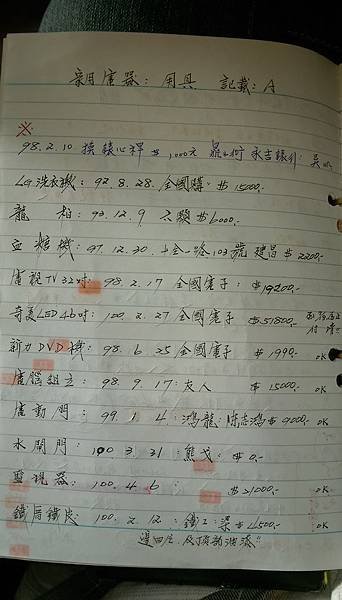 家用電器：用具 記載：A
※
98.2.10 換錶心桿 $1000元 永吉錶行：吳
LG洗衣機：92.8.28.全國購：$15000.-
龍 柏：93.12.9 2顆$6000.-
血糖機：97.12.30. 103號 建昌$2200.-
電視TV32吋：98.2.17 全國電子：$19200.-
奇美LED46吋：100.2.27全國電子 $51800.-
新力DVD機：98.6.25全國電子 $1990.- OK
電腦組立：98.9.17：友人 $15000.- OK
電動門：99.1.4：鴻龍：陳志鴻$9000.- OK
水閘門：100.3.31：熊戈：$0.-
監視器：100.4.6： $21000.- OK
鐵厝鐵皮：100.2.12：鐵工：梁$4500.- OK
週四庄及頂新油漆！！